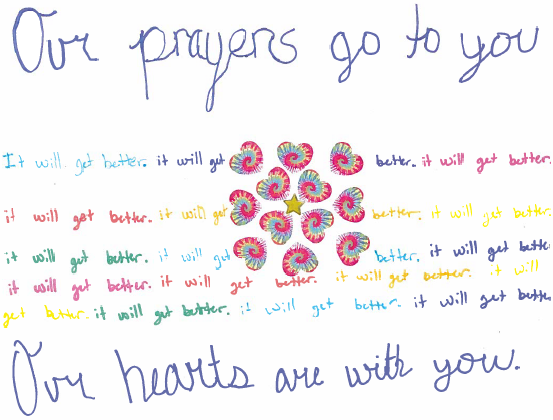 Our prayers go to you
It will get better. it will get better. it will get better.
it will get better. it will get better. it will get better.
it will get better. it will get better. it will get better.
it will get better. it will get better. it will get better. it will
get better. it will get better. it will get better. it will get better.
Our hearts are with you.